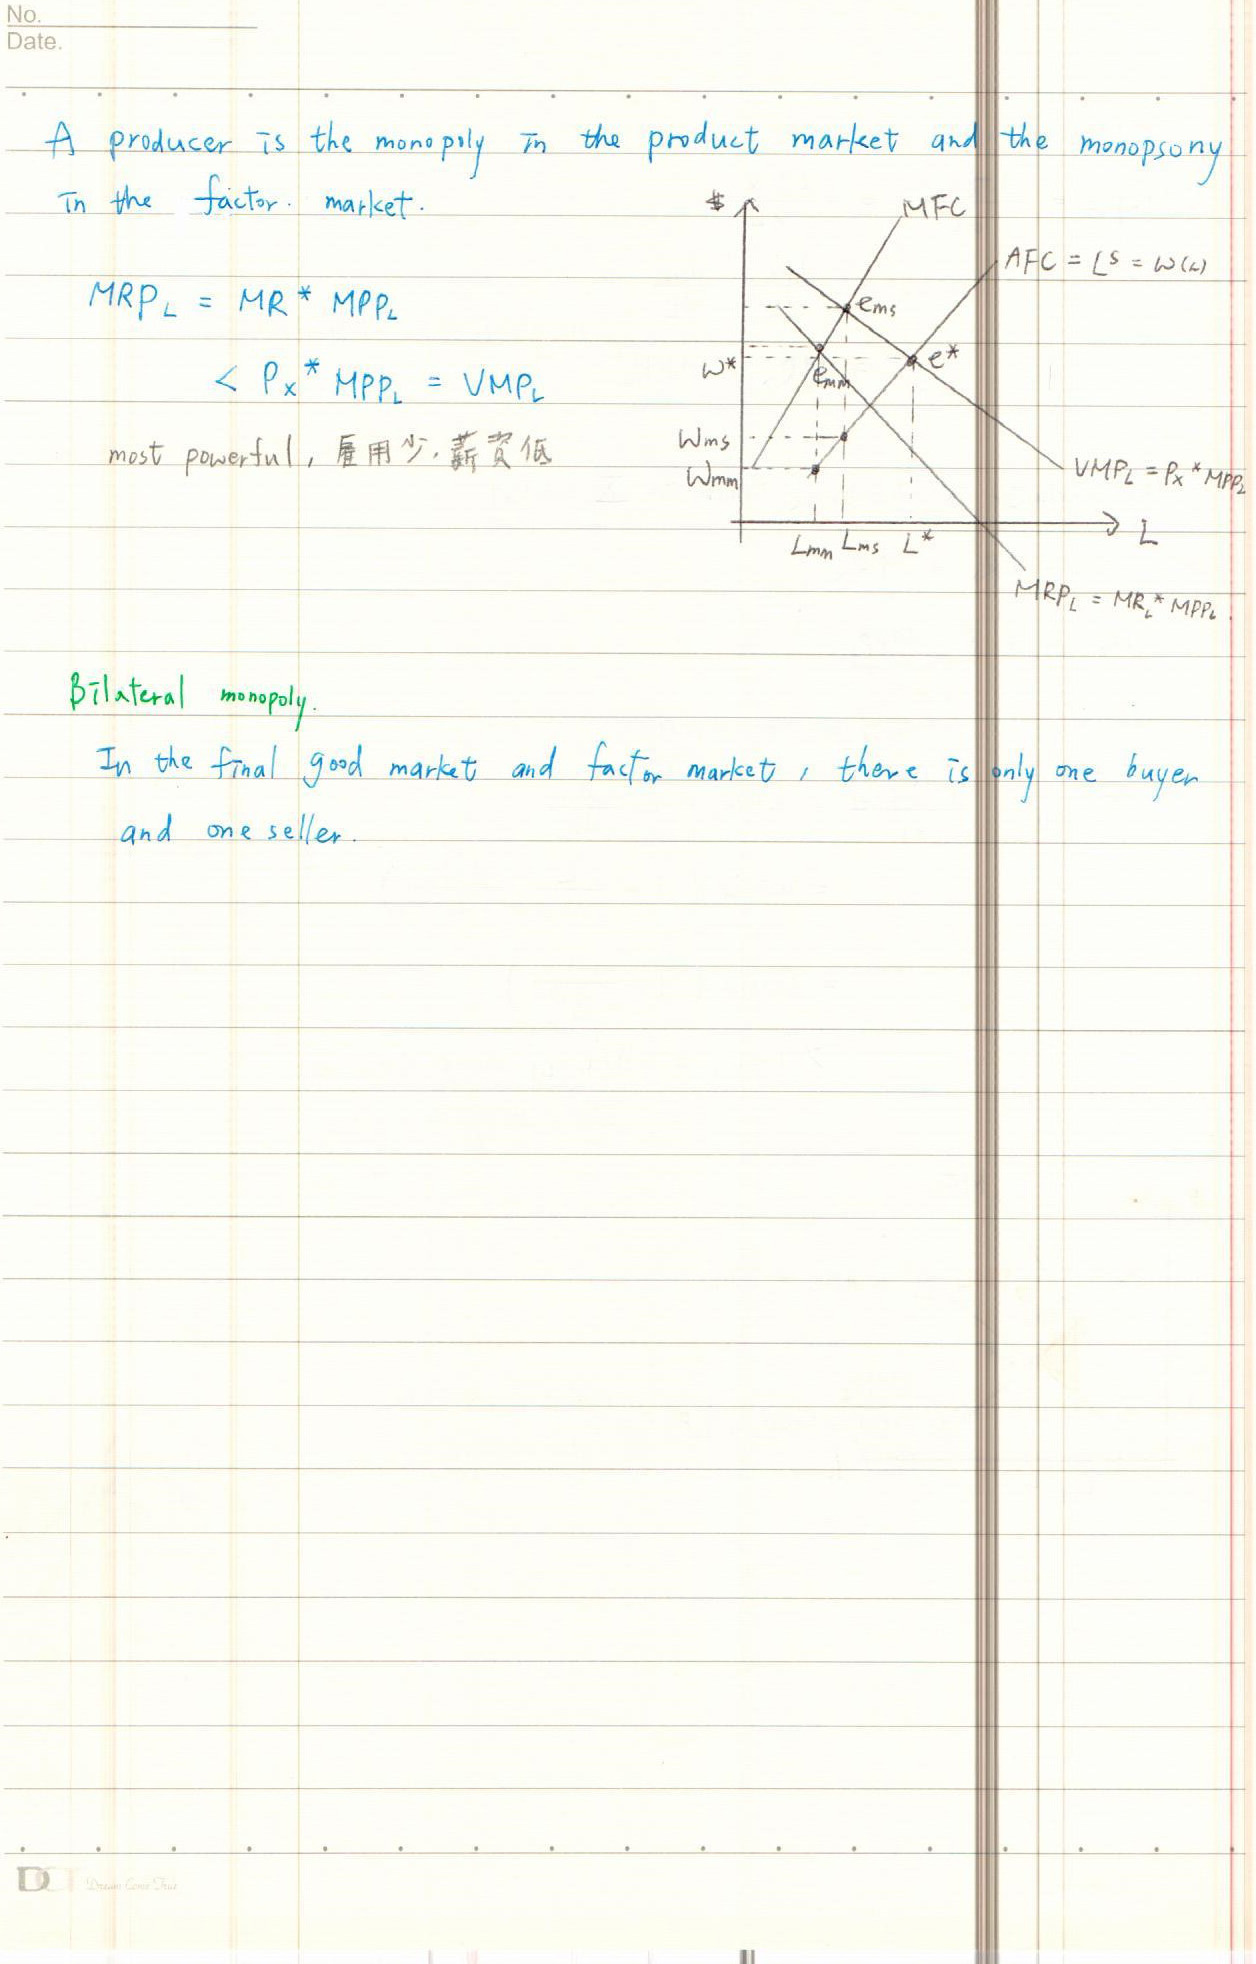 No.
Date.
A producer is the monopoly in the product market and the monopsony
in the factor. market.
MRP_L = MR * MPP_L
< P_x * MPP_L = VMP_L
most powerful, 雇用少, 薪資低
$
MFC
AFC = L^S = W(L)
e_ms
e*
W*
e_mm
W_ms
W_mm
VMP_L = P_x * MPP_L
L_mm L_ms L*
L
MRP_L = MR_L * MPP_L.
Bilateral monopoly.
In the final good market and factor market, there is only one buyer
and one seller.
Dream Come True